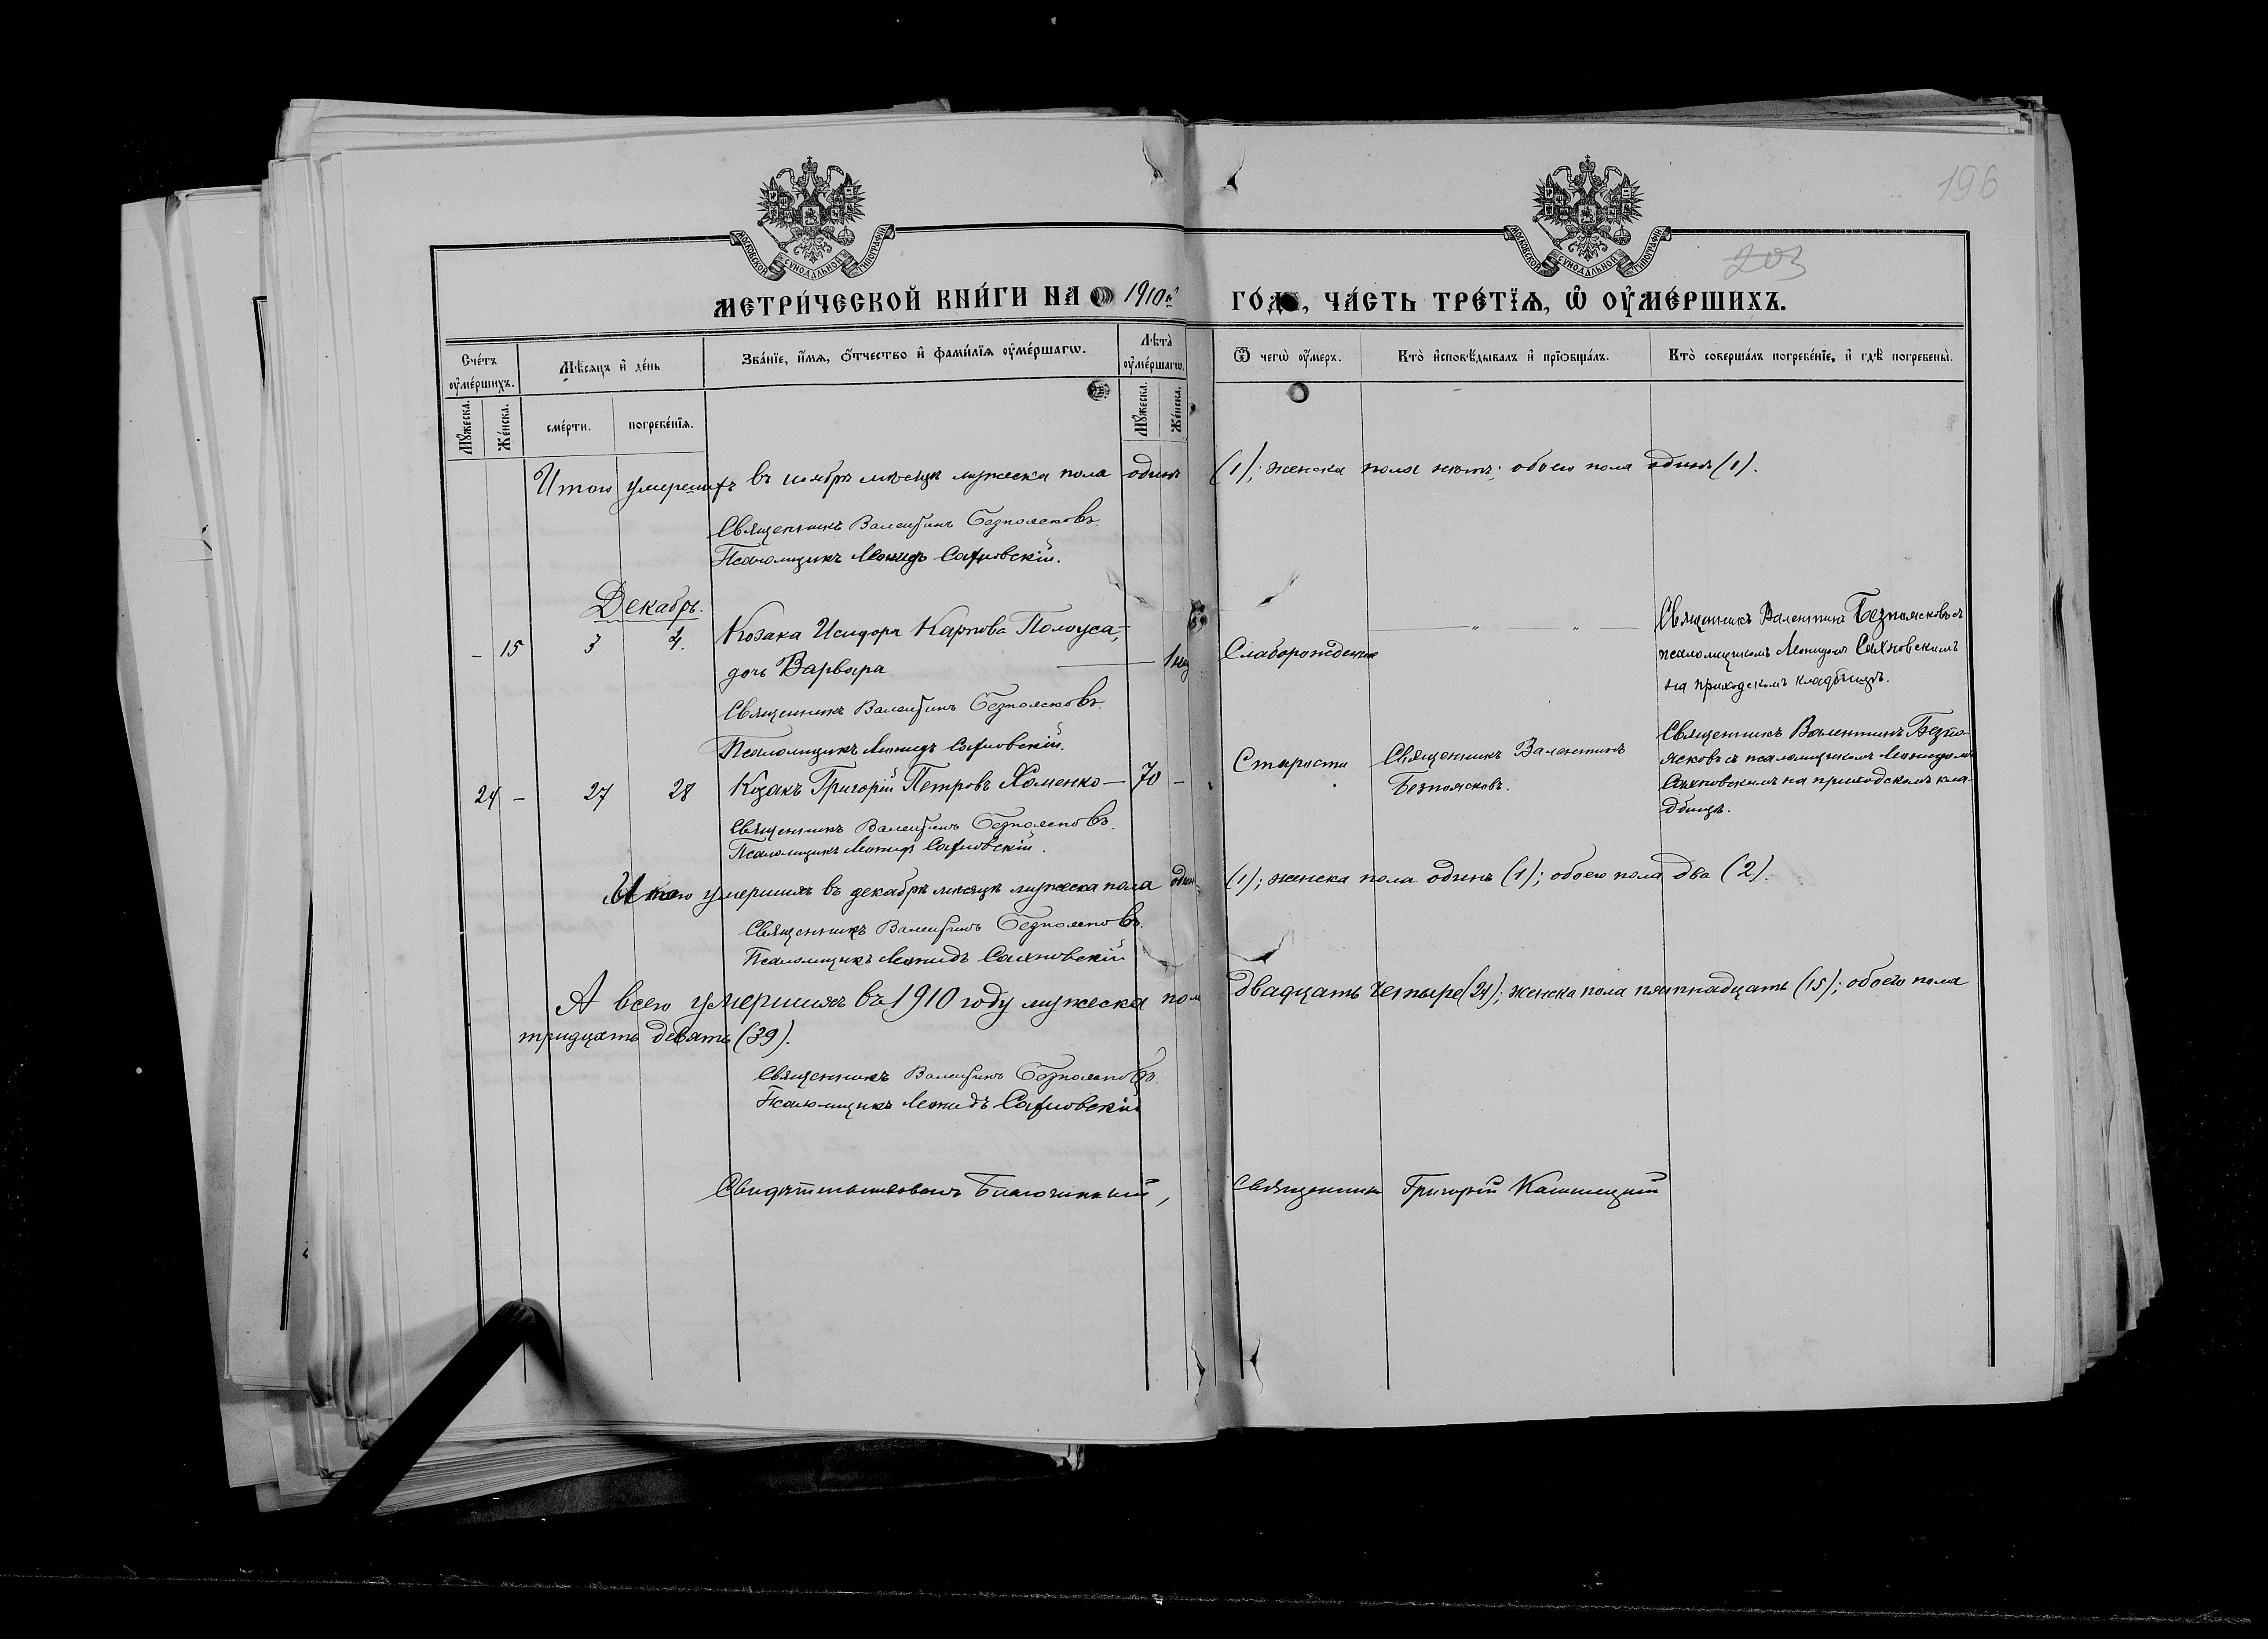 196
МОСКОВСКОЙ СѴНОДАЛЬНОЙ ТИПОГРАФІИ
МОСКОВСКОЙ СѴНОДАЛЬНОЙ ТИПОГРАФІИ
203
МЕТРИ́ЧЕСКОЙ КНИ́ГИ НА 1910й ГО́ДЪ, ЧА́СТЬ ТРЕ́ТЇѦ, Ѡ҆ ОУ҆МЕ́РШИХЪ.
Сче́тъ оу҆ме́ршихъ.
Мѣ́сѧцъ и҆ де́нь
Зва́нїе, и҆́мѧ, ѻ҆́тчество и҆ фами́лїѧ оу҆ме́ршагѡ.
Лѣ́та оу҆ме́ршагѡ.
Ѿ чегѡ̀ оу҆́меръ.
Кто̀ и҆сповѣ́дывалъ и҆ прїѡбща́лъ.
Кто̀ соверша́лъ погребе́нїе, и҆ гдѣ̀ погребены̀.
Мꙋ́жеска.
Же́нска.
сме́рти.
погребе́нїѧ.
Мꙋ́жеска.
Же́нска.
Итого умершихъ въ ноябрѣ мѣсяцѣ мужеска пола одинъ (1); женска пола нѣтъ; обоего пола одинъ (1).
Священникъ Валентинъ Безпоясковъ.
Псаломщикъ Леонидъ Сахновскій.
Декабрь.
– 15 3 4. Козака Исидора Карпова Полоуса, дочь Варвара — 1 нед
Слаборожденіе
— „ — „ —
Священникъ Валентинъ Безпоясковъ съ
псаломщикомъ Леонидомъ Сахновскимъ
на приходскомъ кладбищѣ.
Священникъ Валентинъ Безпоясковъ.
Псаломщикъ Леонидъ Сахновскій.
24 – 27 28 Козакъ Григорій Петровъ Хоменко — 70 –
Старости
Священникъ Валентинъ
Безпоясковъ.
Священникъ Валентинъ Безпо-
ясковъ съ псаломщикомъ Леонидомъ
Сахновскимъ на приходскомъ кла-
дбищѣ.
Священникъ Валентинъ Безпоясковъ.
Псаломщикъ Леонидъ Сахновскій.
Итого умершихъ въ декабрѣ мѣсяцѣ мужеска пола одинъ (1); женска пола одинъ (1); обоего пола два (2).
Священникъ Валентинъ Безпоясковъ.
Псаломщикъ Леонидъ Сахновскій
А всего умершихъ въ 1910 году мужеска пола двадцать четыре (24); женска пола пятнадцать (15); обоего пола
тридцать девять (39).
Священникъ Валентинъ Безпоясковъ.
Псаломщикъ Леонидъ Сахновскій
Свидѣтельствовалъ Благочинный, Священникъ Григорій